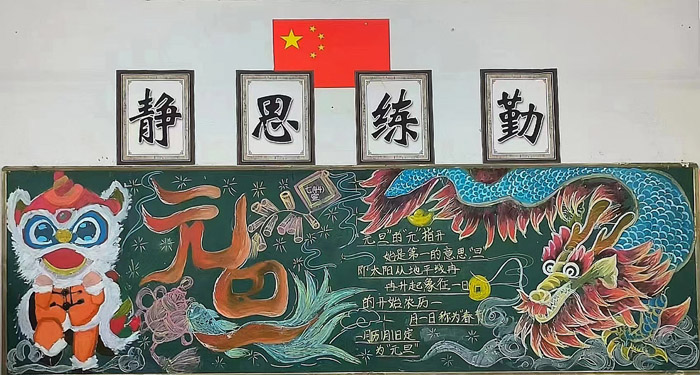 静 思 练 勤
元旦
元旦"的"元"指开
始是第一的意思"旦
即太阳从地平线冉
冉升起象征一日
的开始农历一
月一日称为春节
一月旧定
为"元旦"